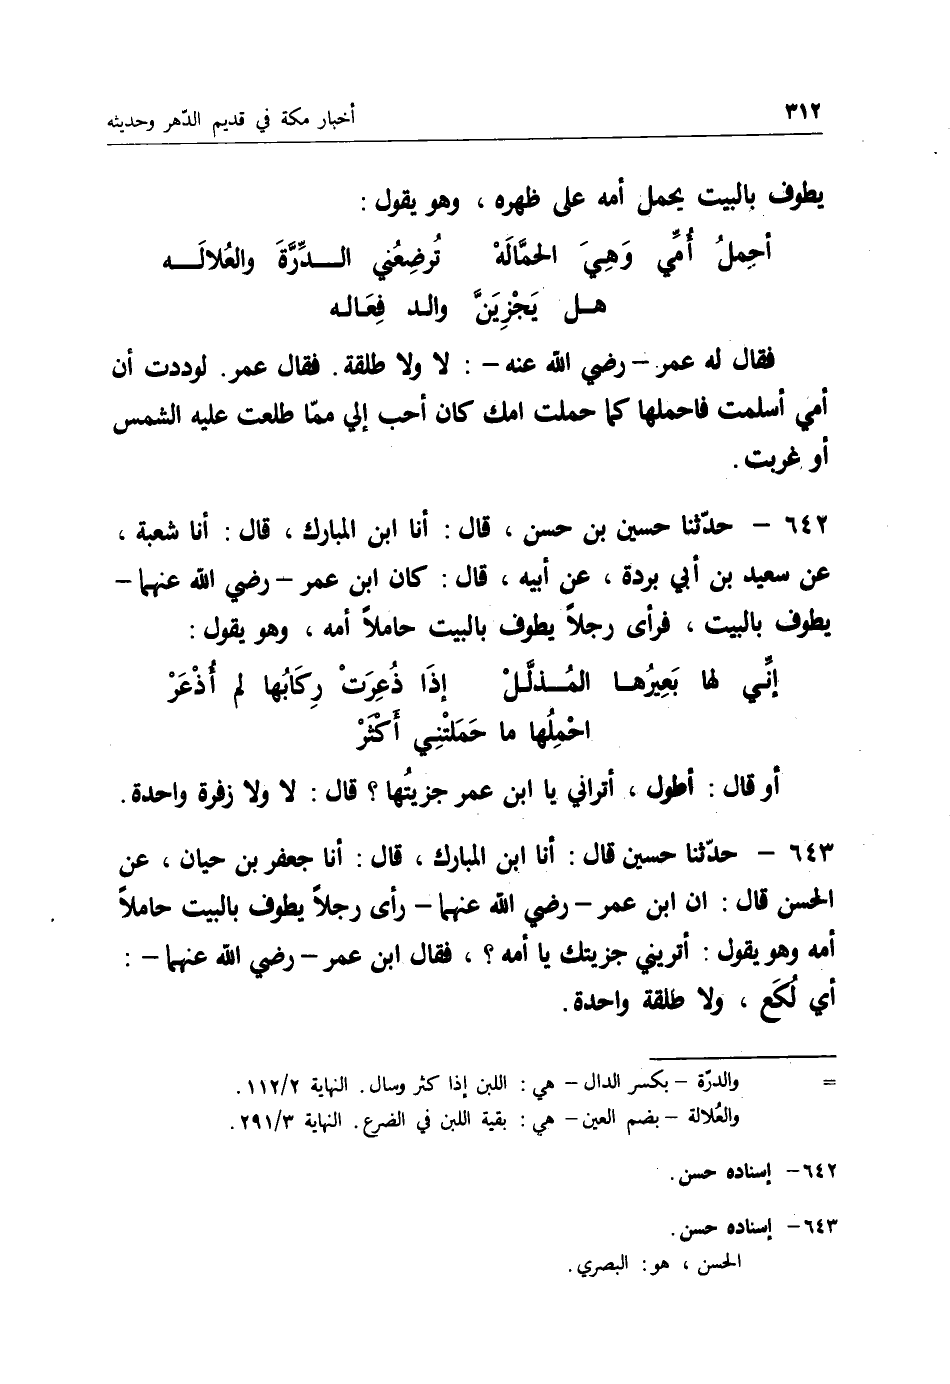 ٣١٢ أخبار مكة في قديم الدّهر وحديثه
يطوف بالبيت يحمل أمه على ظهره ، وهو يقول :
أحمِلُ أُمِّي وَهِيَ الحَمَّالَهْ تُرضِعُني الـــدِّرَّةَ والعُلالَـــه
هـل يَجْزِيَنَّ والـد فِعَـالـه
فقال له عمر – رضي الله عنه – : لا ولا طلقة . فقال عمر . لوددت أن
أمي أسلمت فاحملها كما حملت امك كان أحب إلي ممّا طلعت عليه الشمس
أو غربت .
٦٤٢ – حدّثنا حسين بن حسن ، قال : أنا ابن المبارك ، قال : أنا شعبة ،
عن سعيد بن أبي بردة ، عن أبيه ، قال : كان ابن عمر – رضي الله عنهما –
يطوف بالبيت ، فرأى رجلاً يطوف بالبيت حاملاً أمه ، وهو يقول :
إنِّـي لها بَعِيرُهـا المُـــذلَّـلْ إذَا ذُعِرَتْ رِكَابُها لم أُذْعَرْ
احْمِلُها ما حَمَلتْنِـي أَكثَرْ
أو قال : أطول ، أتراني يا ابن عمر جزيتُها ؟ قال : لا ولا زفرة واحدة .
٦٤٣ – حدّثنا حسين قال : أنا ابن المبارك ، قال : أنا جعفر بن حيان ، عن
الحسن قال : ان ابن عمر – رضي الله عنهما – رأى رجلاً يطوف بالبيت حاملاً
أمه وهو يقول : أتريني جزيتك يا أمه ؟ ، فقال ابن عمر – رضي الله عنهما – :
أي لُكَع ، ولا طلقة واحدة .
= والدرّة – بكسر الدال – هي : اللبن إذا كثر وسال . النهاية ١١٢/٢ .
والعُلالة – بضم العين – هي : بقية اللبن في الضرع . النهاية ٢٩١/٣ .
٦٤٢ – إسناده حسن .
٦٤٣ – إسناده حسن .
الحسن ، هو : البصري .